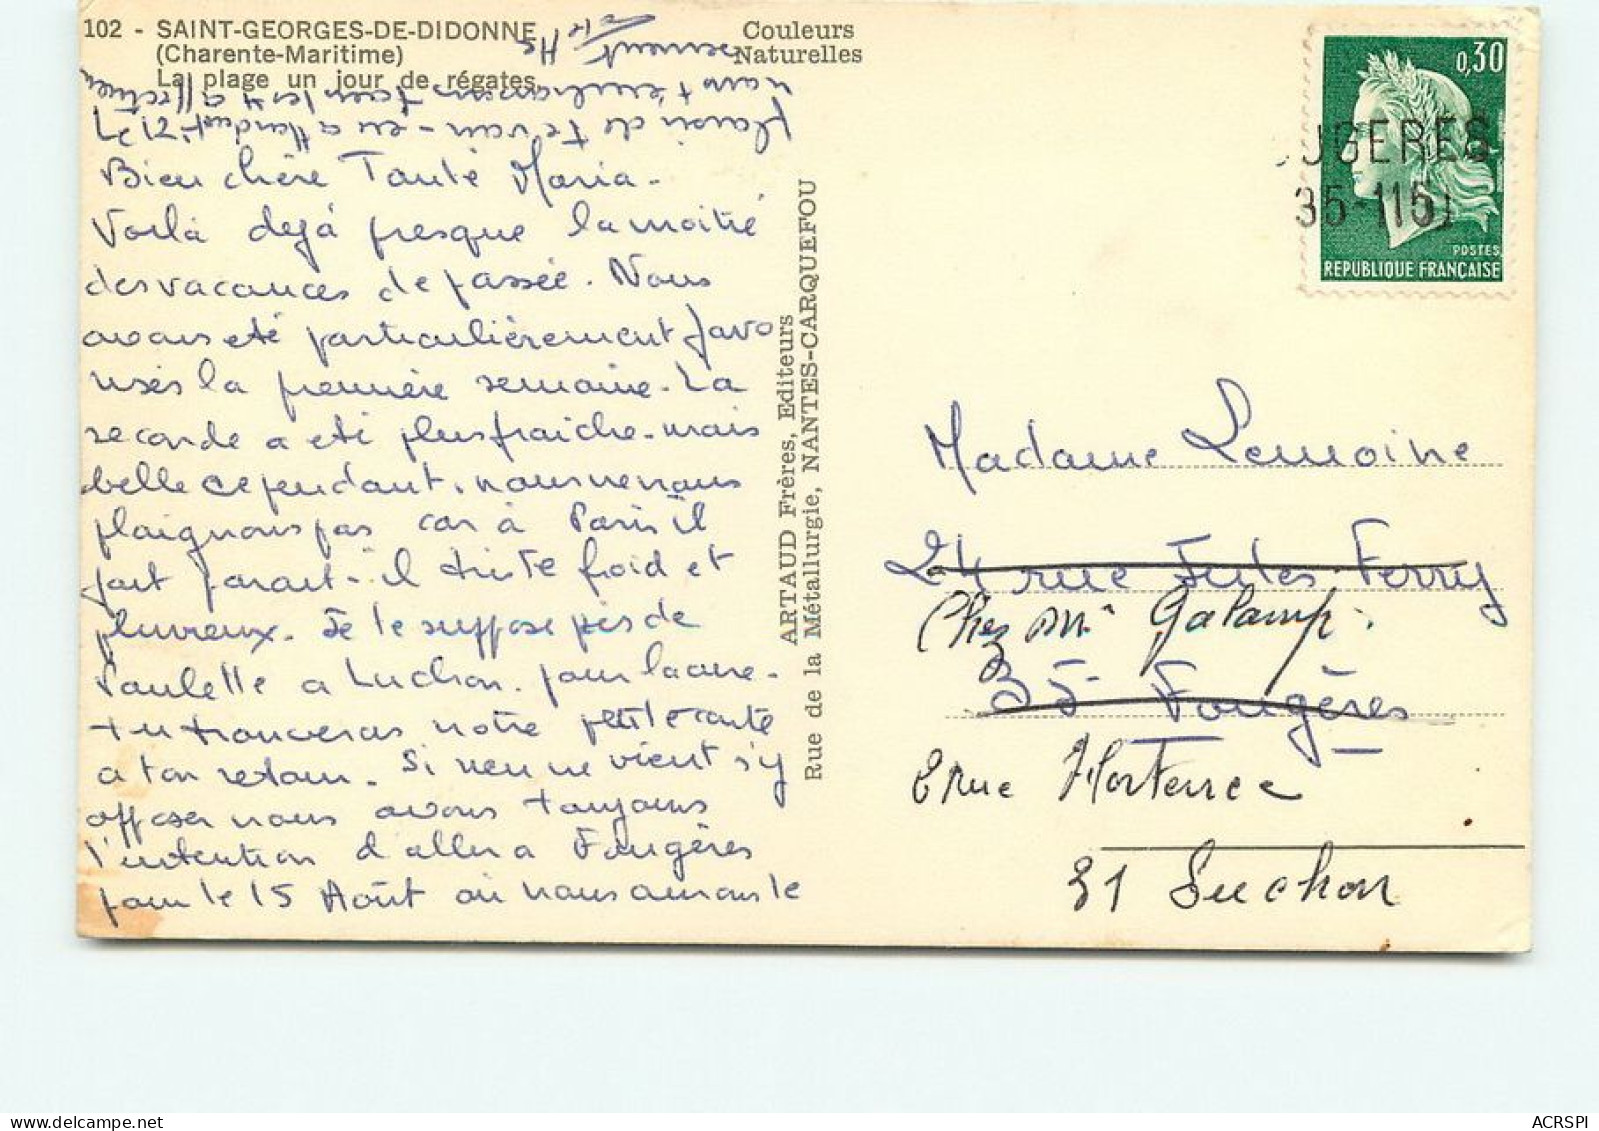 102 - SAINT-GEORGES-DE-DIDONNE
(Charente-Maritime)
La plage un jour de régates
Couleurs
Naturelles
Bien chère Tante Maria.
Voilà dejà presque la moitié
des vacances de passée. Nous
avons eté particulièrement favo
risés la première semaine. La
seconde a eté plus fraiche. mais
belle cependant. nous ne nous
plaignons pas car à Paris il
fait parait-il triste froid et
pluvieux. Je te suppose près de
Paulette a Luchon. pour la cure.
tu trouveras notre petite carte
a ton retour. Si rien ne vient s'y
opposer nous avons toujours
l'intention d'aller a Fougères
pour le 15 Août où nous aurons le
plaisir de te voir - en attendant
nous t'embrassons tous les 4 affectueu
sement
ARTAUD Frères, Editeurs
Rue de la Métallurgie, NANTES-CARQUEFOU
0,30
POSTES
REPUBLIQUE FRANÇAISE
UGERES
35
Madame Lemoine
24 rue Jules Ferry
Chez Mr Galamp.
35 Fougères
rue Hortense
31 Luchon
ACRSPI